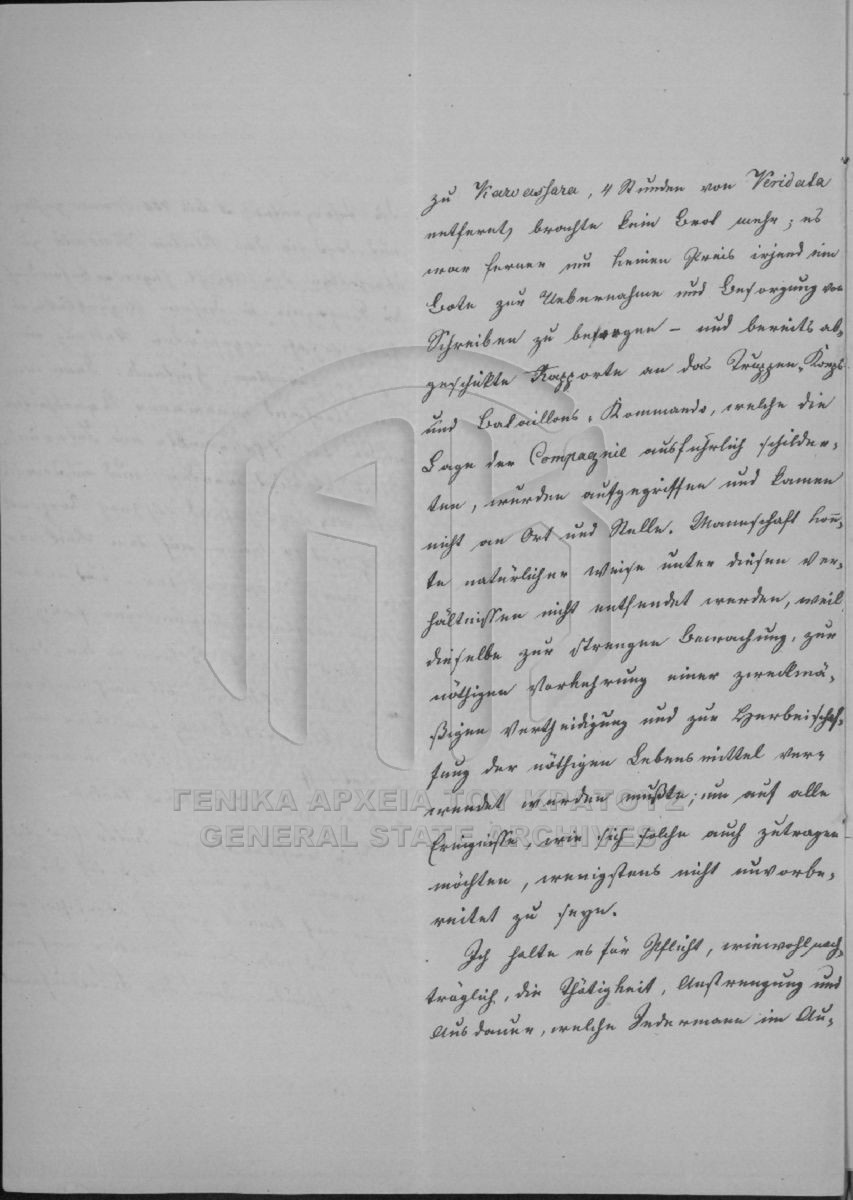 zu Karvassara, 4 Stunden von Veridata
entfernt, brachte kein Brot mehr; es
war ferner um keinen Preis irgend ein
Bote zur Uebernahme und Besorgung von
Schreiben zu besorgen – und bereits ab-
geschikte Rapporte an das Truppen-Korps
und Bataillons-Kommando, welche die
Lage der Compagnie ausführlich schilder-
ten, wurden aufgegriffen und kamen
nicht an Ort und Stelle. Mannschaft konn-
te natürlicher Weise unter diesen Ver-
hältnissen nicht entsendet werden, weil
dieselbe zur strengen Bewachung, zur
nöthigen Vorkehrung einer zweckmä-
ßigen Vertheidigung und zur Herbeischaf-
fung der nöthigen Lebensmittel ver-
wendet werden mußte; um auf alle
Ereignisse, wie sich solche auch zutragen
möchten, wenigstens nicht unvorbe-
reitet zu seyn.
Ich halte es für Pflicht, wiewohl nach-
träglich, die Thätigkeit, Anstrengung und
Ausdauer, welche Jedermann im Au-
ΓΕΝΙΚΑ ΑΡΧΕΙΑ ΤΟΥ ΚΡΑΤΟΥΣ
GENERAL STATE ARCHIVES